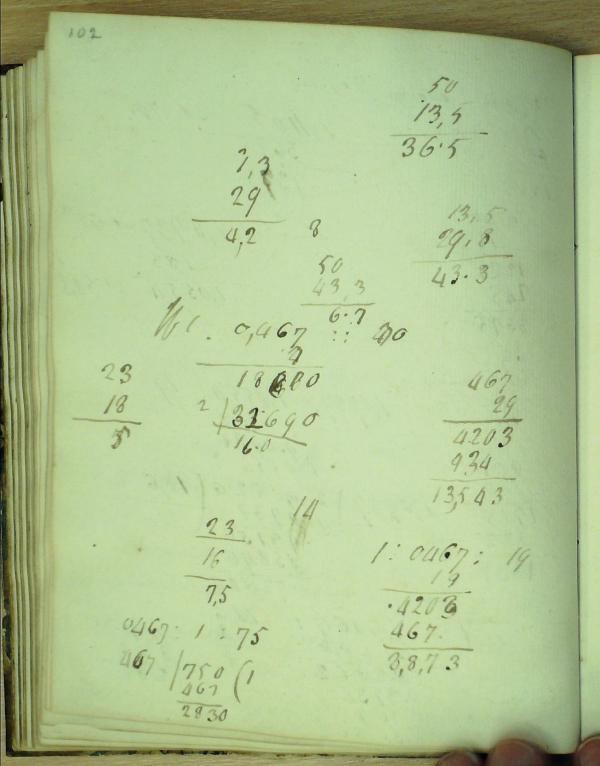 102
50
13,5
36.5
7,3
29
4,2
8
13,5
29,8
43.3
50
43,3
6.7
0,467 ::
18
23
18
5
2
16.0
467
29
4203
934
13,543
14
23
16
7,5
1 : 0467 : 19
19
4203
467
8,873
0467 : 1 : 75
467 750 (1
467
2830